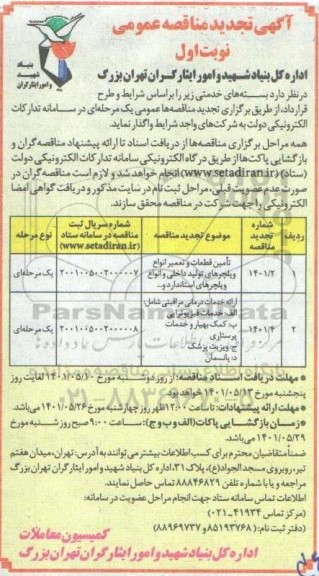 آگهی تجدید مناقصه عمومی
نوبت اول
بنیاد
شهید
و امور ایثارگران
اداره کل بنیاد شهید و امور ایثارگران تهران بزرگ
در نظر دارد بسته‌های خدمتی زیر را براساس شرایط و طرح
قرارداد، از طریق برگزاری تجدید مناقصه‌ها عمومی یک مرحله‌ای در سامانه تدارکات
الکترونیکی دولت به شرکت‌های واجد شرایط واگذار نماید.
همه مراحل برگزاری مناقصه‌ها از دریافت اسناد تا ارائه پیشنهاد مناقصه‌گران و
بازگشایی پاکت‌ها از طریق درگاه الکترونیکی سامانه تدارکات الکترونیکی دولت
(ستاد) (www.setadiran.ir) انجام خواهد شد و لازم است مناقصه‌گران در
صورت عدم عضویت قبلی، مراحل ثبت نام در سایت مذکور و دریافت گواهی امضا
الکترونیکی را جهت شرکت در مناقصه محقق سازند.
ردیف شماره تجدید مناقصه موضوع تجدید مناقصه شماره سریال ثبت مناقصه در سامانه ستاد (www.setadiran.ir) نوع مرحله
۱ ۱۴۰۱/۲ تأمین قطعات و تعمیر انواع ویلچرهای تولید داخلی و انواع ویلچرهای استاندارد و... ۲۰۰۱۰۰۵۰۰۲۰۰۰۰۰۷ یک مرحله‌ای
۲ ۱۴۰۱/۴ ارائه خدمات درمانی مراقبتی شامل: الف: خدمات فیزیوتراپی ب: کمک بهیار و خدمات پرستاری ج: ویزیت پزشک د: پانسمان ۲۰۰۱۰۰۵۰۰۲۰۰۰۰۰۸ یک مرحله‌ای
ParsNamadData
۰۲۱-۸۸۳۴۹۶۷۰
• مهلت دریافت اسناد مناقصه: از روز دوشنبه مورخ ۱۴۰۱/۰۵/۱۰ لغایت روز
پنجشنبه مورخ ۱۴۰۱/۰۵/۱۳ خواهد بود.
• مهلت ارائه پیشنهادات: تا ساعت ۱۲:۰۰ ظهر روز چهارشنبه مورخ ۱۴۰۱/۰۵/۲۶ می‌باشد.
• زمان بازگشایی پاکات: (الف و ب و ج): ساعت ۹:۰۰ صبح روز شنبه مورخ
۱۴۰۱/۰۵/۲۹ می‌باشد.
ضمناً متقاضیان محترم برای کسب اطلاعات بیشتر می‌توانند به آدرس: تهران، میدان هفتم
تیر، روبروی مسجد الجواد(ع)، پلاک ۳۱، اداره کل بنیاد شهید و امور ایثارگران تهران بزرگ
مراجعه و یا با شماره تلفن ۸۸۸۴۶۸۲۹ تماس حاصل نمایند.
اطلاعات تماس سامانه ستاد جهت انجام مراحل عضویت در سامانه:
(مرکز تماس ۴۱۹۳۴-۰۲۱)
(دفتر ثبت نام: ۸۵۱۹۳۷۶۸ و ۸۸۹۶۹۷۳۷)
کمیسیون معاملات
اداره کل بنیاد شهید و امور ایثارگران تهران بزرگ